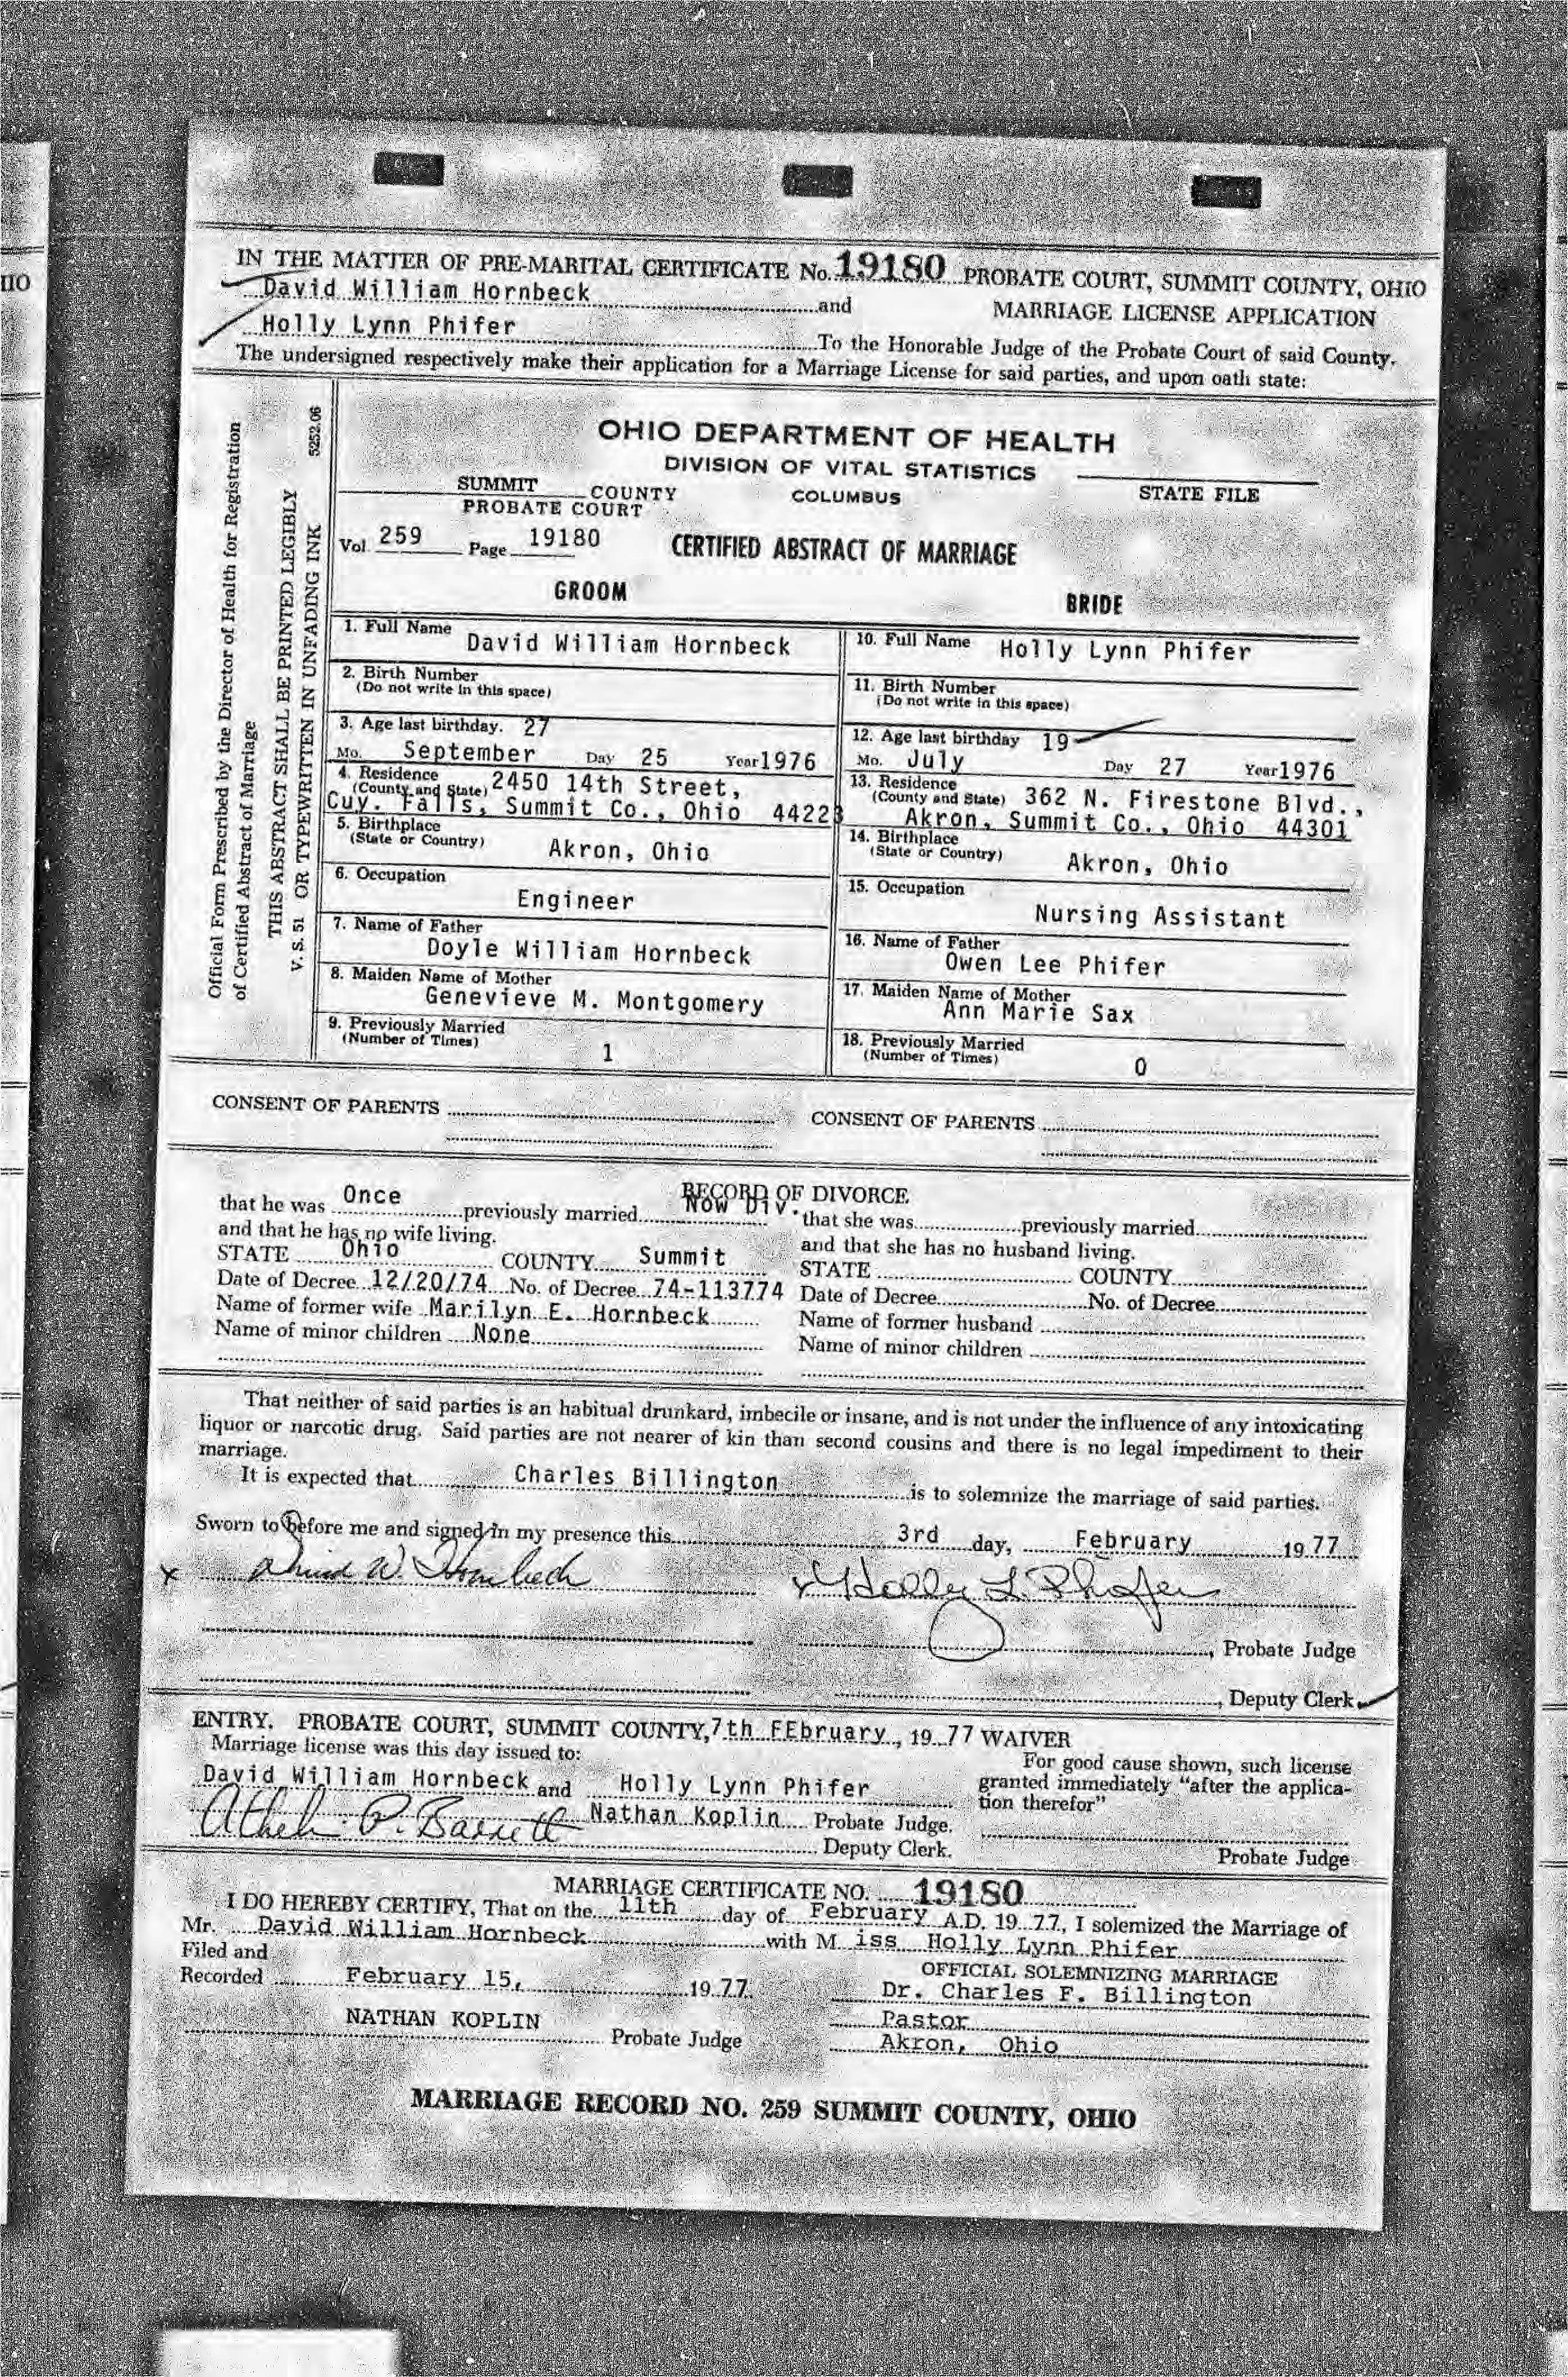 IN THE MATTER OF PRE-MARITAL CERTIFICATE No. 19180 PROBATE COURT, SUMMIT COUNTY, OHIO
David William Hornbeck and MARRIAGE LICENSE APPLICATION
Holly Lynn Phifer To the Honorable Judge of the Probate Court of said County.
The undersigned respectively make their application for a Marriage License for said parties, and upon oath state:
Official Form Prescribed by the Director of Health for Registration
of Certified Abstract of Marriage
THIS ABSTRACT SHALL BE PRINTED LEGIBLY
V. S. 51 OR TYPEWRITTEN IN UNFADING INK 5252.06
OHIO DEPARTMENT OF HEALTH
DIVISION OF VITAL STATISTICS
SUMMIT COUNTY COLUMBUS STATE FILE
PROBATE COURT
Vol. 259 Page 19180 CERTIFIED ABSTRACT OF MARRIAGE
GROOM BRIDE
1. Full Name David William Hornbeck
2. Birth Number
(Do not write in this space)
3. Age last birthday. 27
Mo. September Day 25 Year 1976
4. Residence 2450 14th Street,
(County and State)
Cuy. Falls, Summit Co., Ohio 44223
5. Birthplace
(State or Country) Akron, Ohio
6. Occupation
Engineer
7. Name of Father
Doyle William Hornbeck
8. Maiden Name of Mother
Genevieve M. Montgomery
9. Previously Married
(Number of Times) 1
10. Full Name Holly Lynn Phifer
11. Birth Number
(Do not write in this space)
12. Age last birthday 19
Mo. July Day 27 Year 1976
13. Residence
(County and State) 362 N. Firestone Blvd.,
Akron, Summit Co., Ohio 44301
14. Birthplace
(State or Country) Akron, Ohio
15. Occupation
Nursing Assistant
16. Name of Father
Owen Lee Phifer
17. Maiden Name of Mother
Ann Marie Sax
18. Previously Married
(Number of Times) 0
CONSENT OF PARENTS CONSENT OF PARENTS
RECORD OF DIVORCE
that he was Once previously married Now Div. that she was previously married
and that he has no wife living. and that she has no husband living.
STATE Ohio COUNTY Summit STATE COUNTY
Date of Decree 12/20/74 No. of Decree 74-113774 Date of Decree No. of Decree
Name of former wife Marilyn E. Hornbeck Name of former husband
Name of minor children None Name of minor children
That neither of said parties is an habitual drunkard, imbecile or insane, and is not under the influence of any intoxicating
liquor or narcotic drug. Said parties are not nearer of kin than second cousins and there is no legal impediment to their
marriage.
It is expected that Charles Billington is to solemnize the marriage of said parties.
Sworn to before me and signed in my presence this 3rd day, February 19 77
x David W. Hornbeck x Holly L. Phifer
, Probate Judge
, Deputy Clerk
ENTRY. PROBATE COURT, SUMMIT COUNTY, 7th FEbruary, 19 77 WAIVER
Marriage license was this day issued to: For good cause shown, such license
David William Hornbeck and Holly Lynn Phifer granted immediately "after the applica-
tion therefor"
Nathan Koplin Probate Judge.
P. Barrett Deputy Clerk. Probate Judge
MARRIAGE CERTIFICATE NO. 19180
I DO HEREBY CERTIFY, That on the 11th day of February A.D. 19 77, I solemized the Marriage of
Mr. David William Hornbeck with M iss Holly Lynn Phifer
Filed and OFFICIAL SOLEMNIZING MARRIAGE
Recorded February 15, 19 77. Dr. Charles F. Billington
NATHAN KOPLIN Probate Judge Pastor
Akron, Ohio
MARRIAGE RECORD NO. 259 SUMMIT COUNTY, OHIO